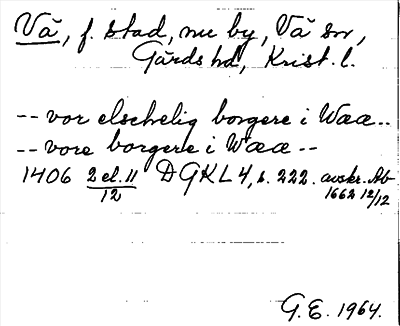 Vä, f. stad, nu by, Vä sn,
Gärds hd, Krist. l.
-- vor elschelig borgere i Wææ --
-- vore borgere i Wææ --
1406 2 el. 11/12 DGKL 4, s. 222. avskr. Ab
1662 12/12
G.E. 1964.